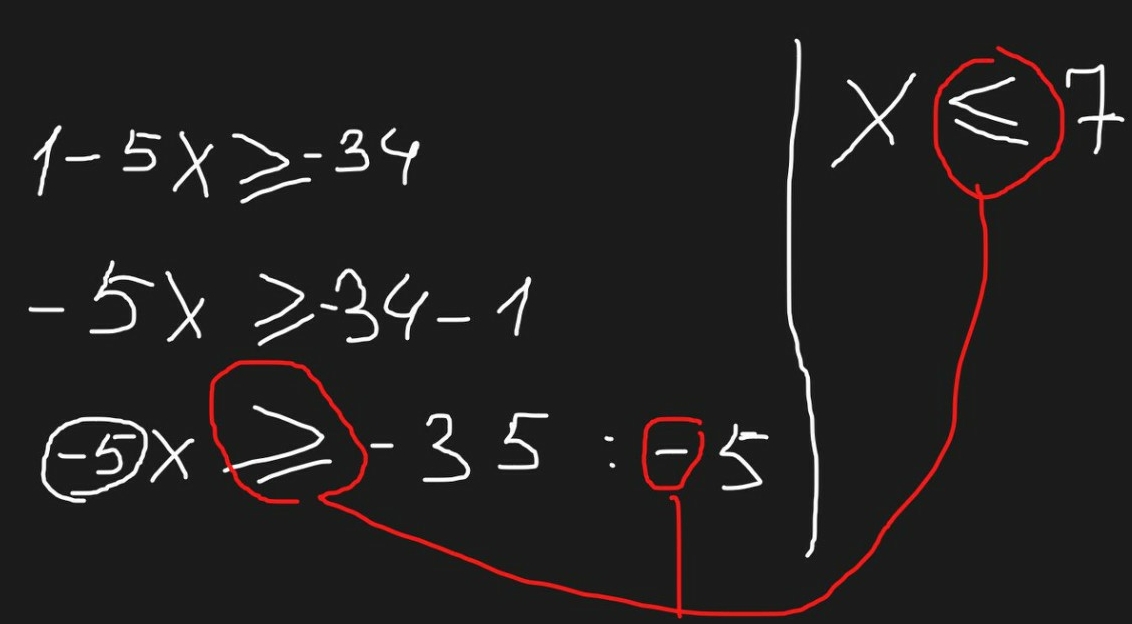 1-5x ≥ -34
-5x ≥ -34-1
-5x ≥ -35 : -5
x ≤ 7